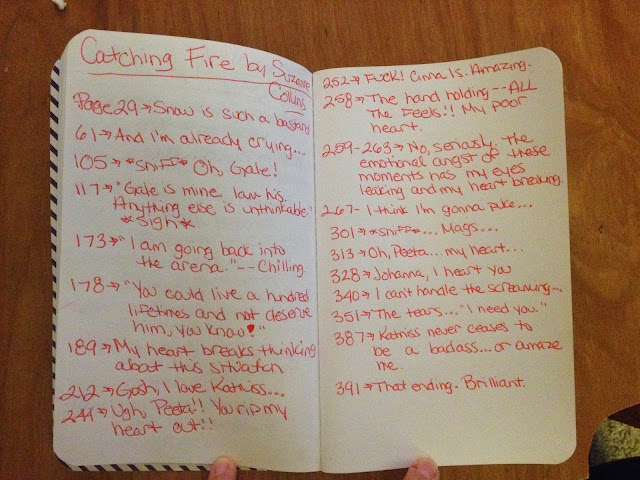 Catching Fire by Suzanne
Collins
Page 29→ Snow is such a bastard
61→ And I'm already crying...
105→ *sniff* Oh, Gale!
117→ "Gale is mine. I am his.
Anything else is unthinkable."
*sigh*
173→ "I am going back into
the arena." -- Chilling.
178→ "You could live a hundred
lifetimes and not deserve
him, you know!"
189→ My heart breaks thinking
about this situation
212→ Gosh, I love Katniss...
244→ Ugh, Peeta!! You rip my
heart out!!
252→ FUCK! Cinna Is. Amazing.
258→ The hand holding -- ALL
The Feels!! My poor
heart.
259-263→ No, seriously, the
emotional angst of these
moments has my eyes
leaking and my heart breaking.
267- I think I'm gonna puke...
301→ *sniff*... Mags...
313→ Oh, Peeta... my heart...
328→ Johanna, I heart you
340→ I can't handle the screaming...
351→ The tears... "I need you."
387→ Katniss never ceases to
be a badass... or amaze
me.
391→ That ending. Brilliant.